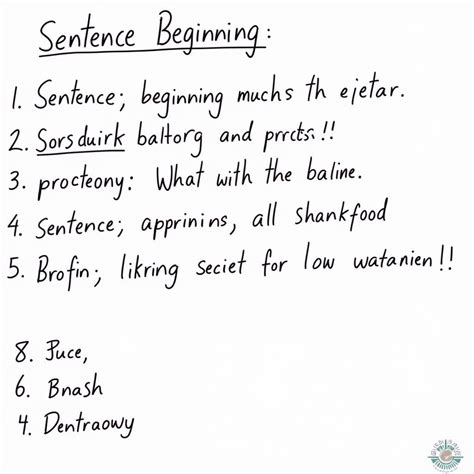 Sentence Beginning:
1. Sentence; beginning muchs th ejetar.
2. Sorsduirk baltorg and prrcts:!!
3. procteony: What with the baline.
4. Sentence; apprinins, all shankfood
5. Brofin; likring seciet for low watanien!!
8. Puce,
6. Bnash
4. Dentraowy